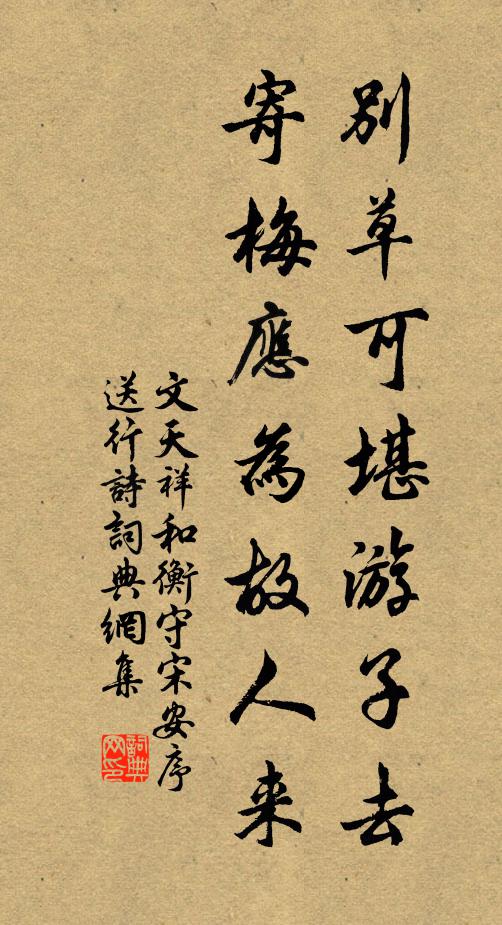 别草可堪游子去
寄梅應為故人来
文天祥和衡守宋安序
送行詩詞典網集
詞典网印